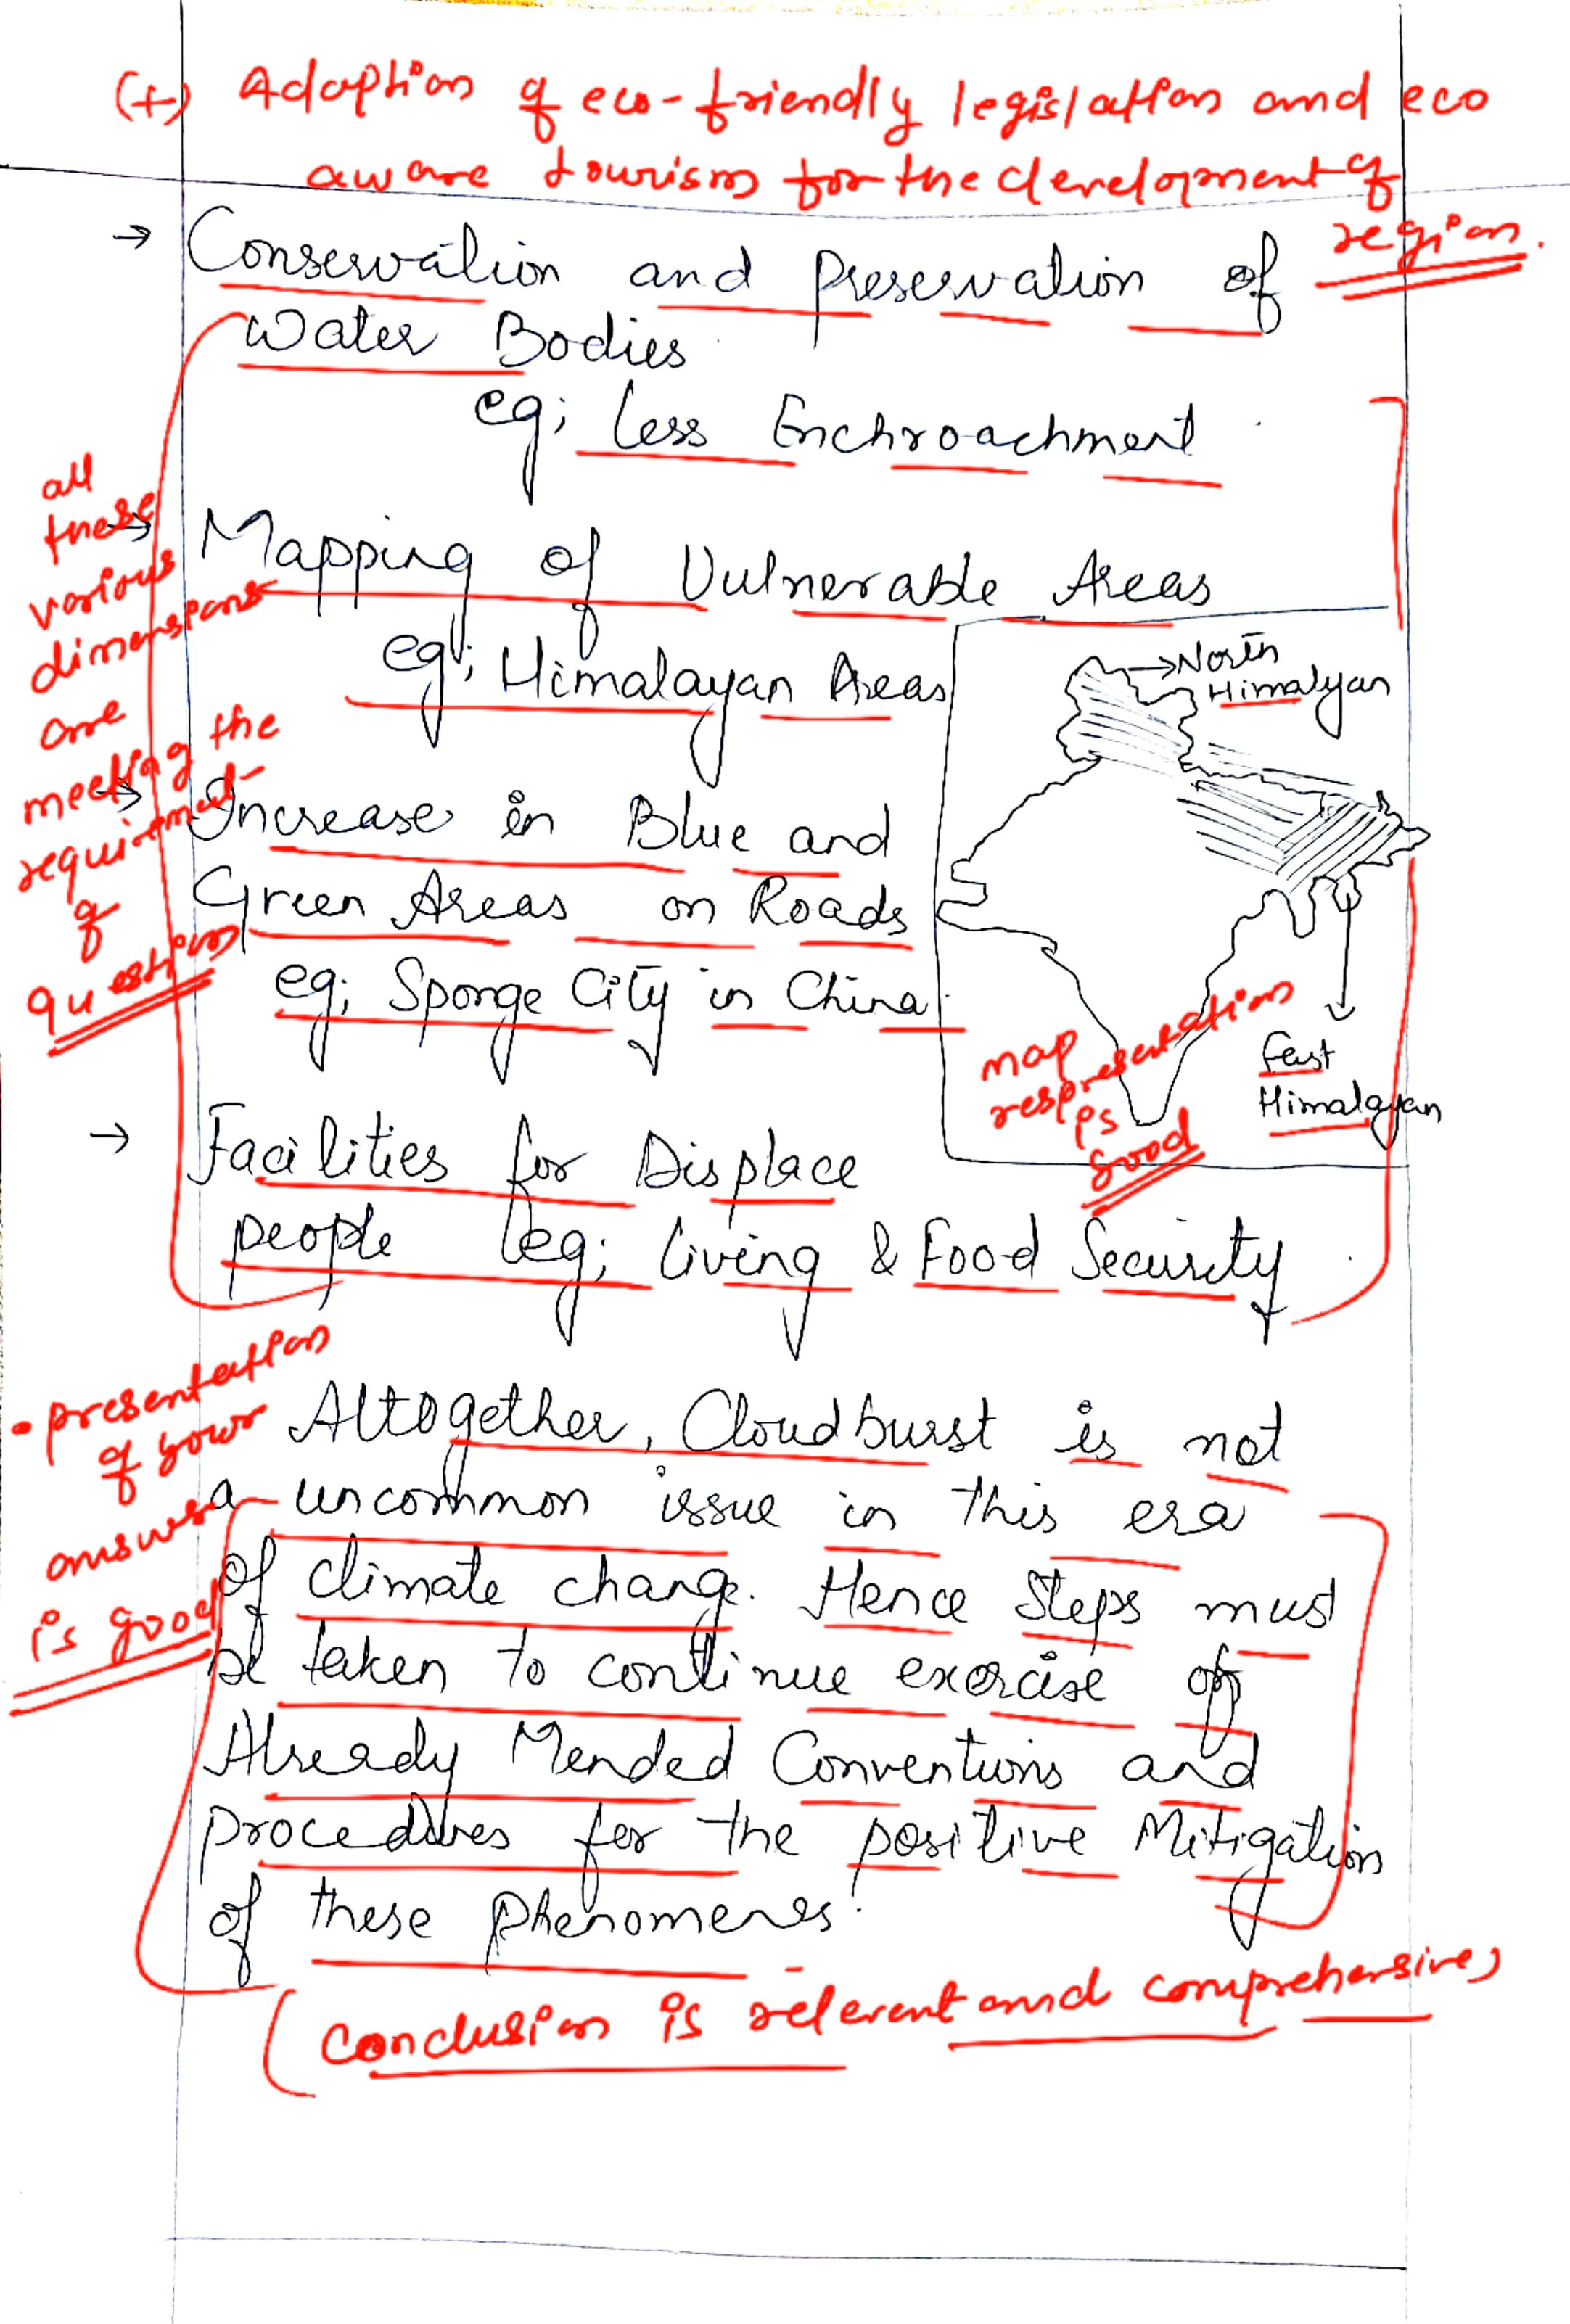 (+) Adoption of eco-friendly legislation and eco
aware tourism for the development of
region.
→ Conservation and Preservation of
Water Bodies
eg; Less Enchroachment
all
these
various
dimensions
are
meeting the
requirement
of
question
→ Mapping of Vulnerable Areas
eg; Himalayan Areas
→ North
Himalyan
→ Increase in Blue and
Green Areas on Roads
eg; Sponge City in China
East
Himalayan
map
respresentation
is
good
→ Facilities for Displace
people eg; Living & Food Security
• presentation
of your
answer
is good
Altogether, Cloudburst is not
a uncommon issue in this era
of climate change. Hence Steps must
be taken to continue exercise of
Already Mended Conventions and
procedures for the positive Mitigation
of these Phenomenes.
(Conclusion is relevant and comprehensive)